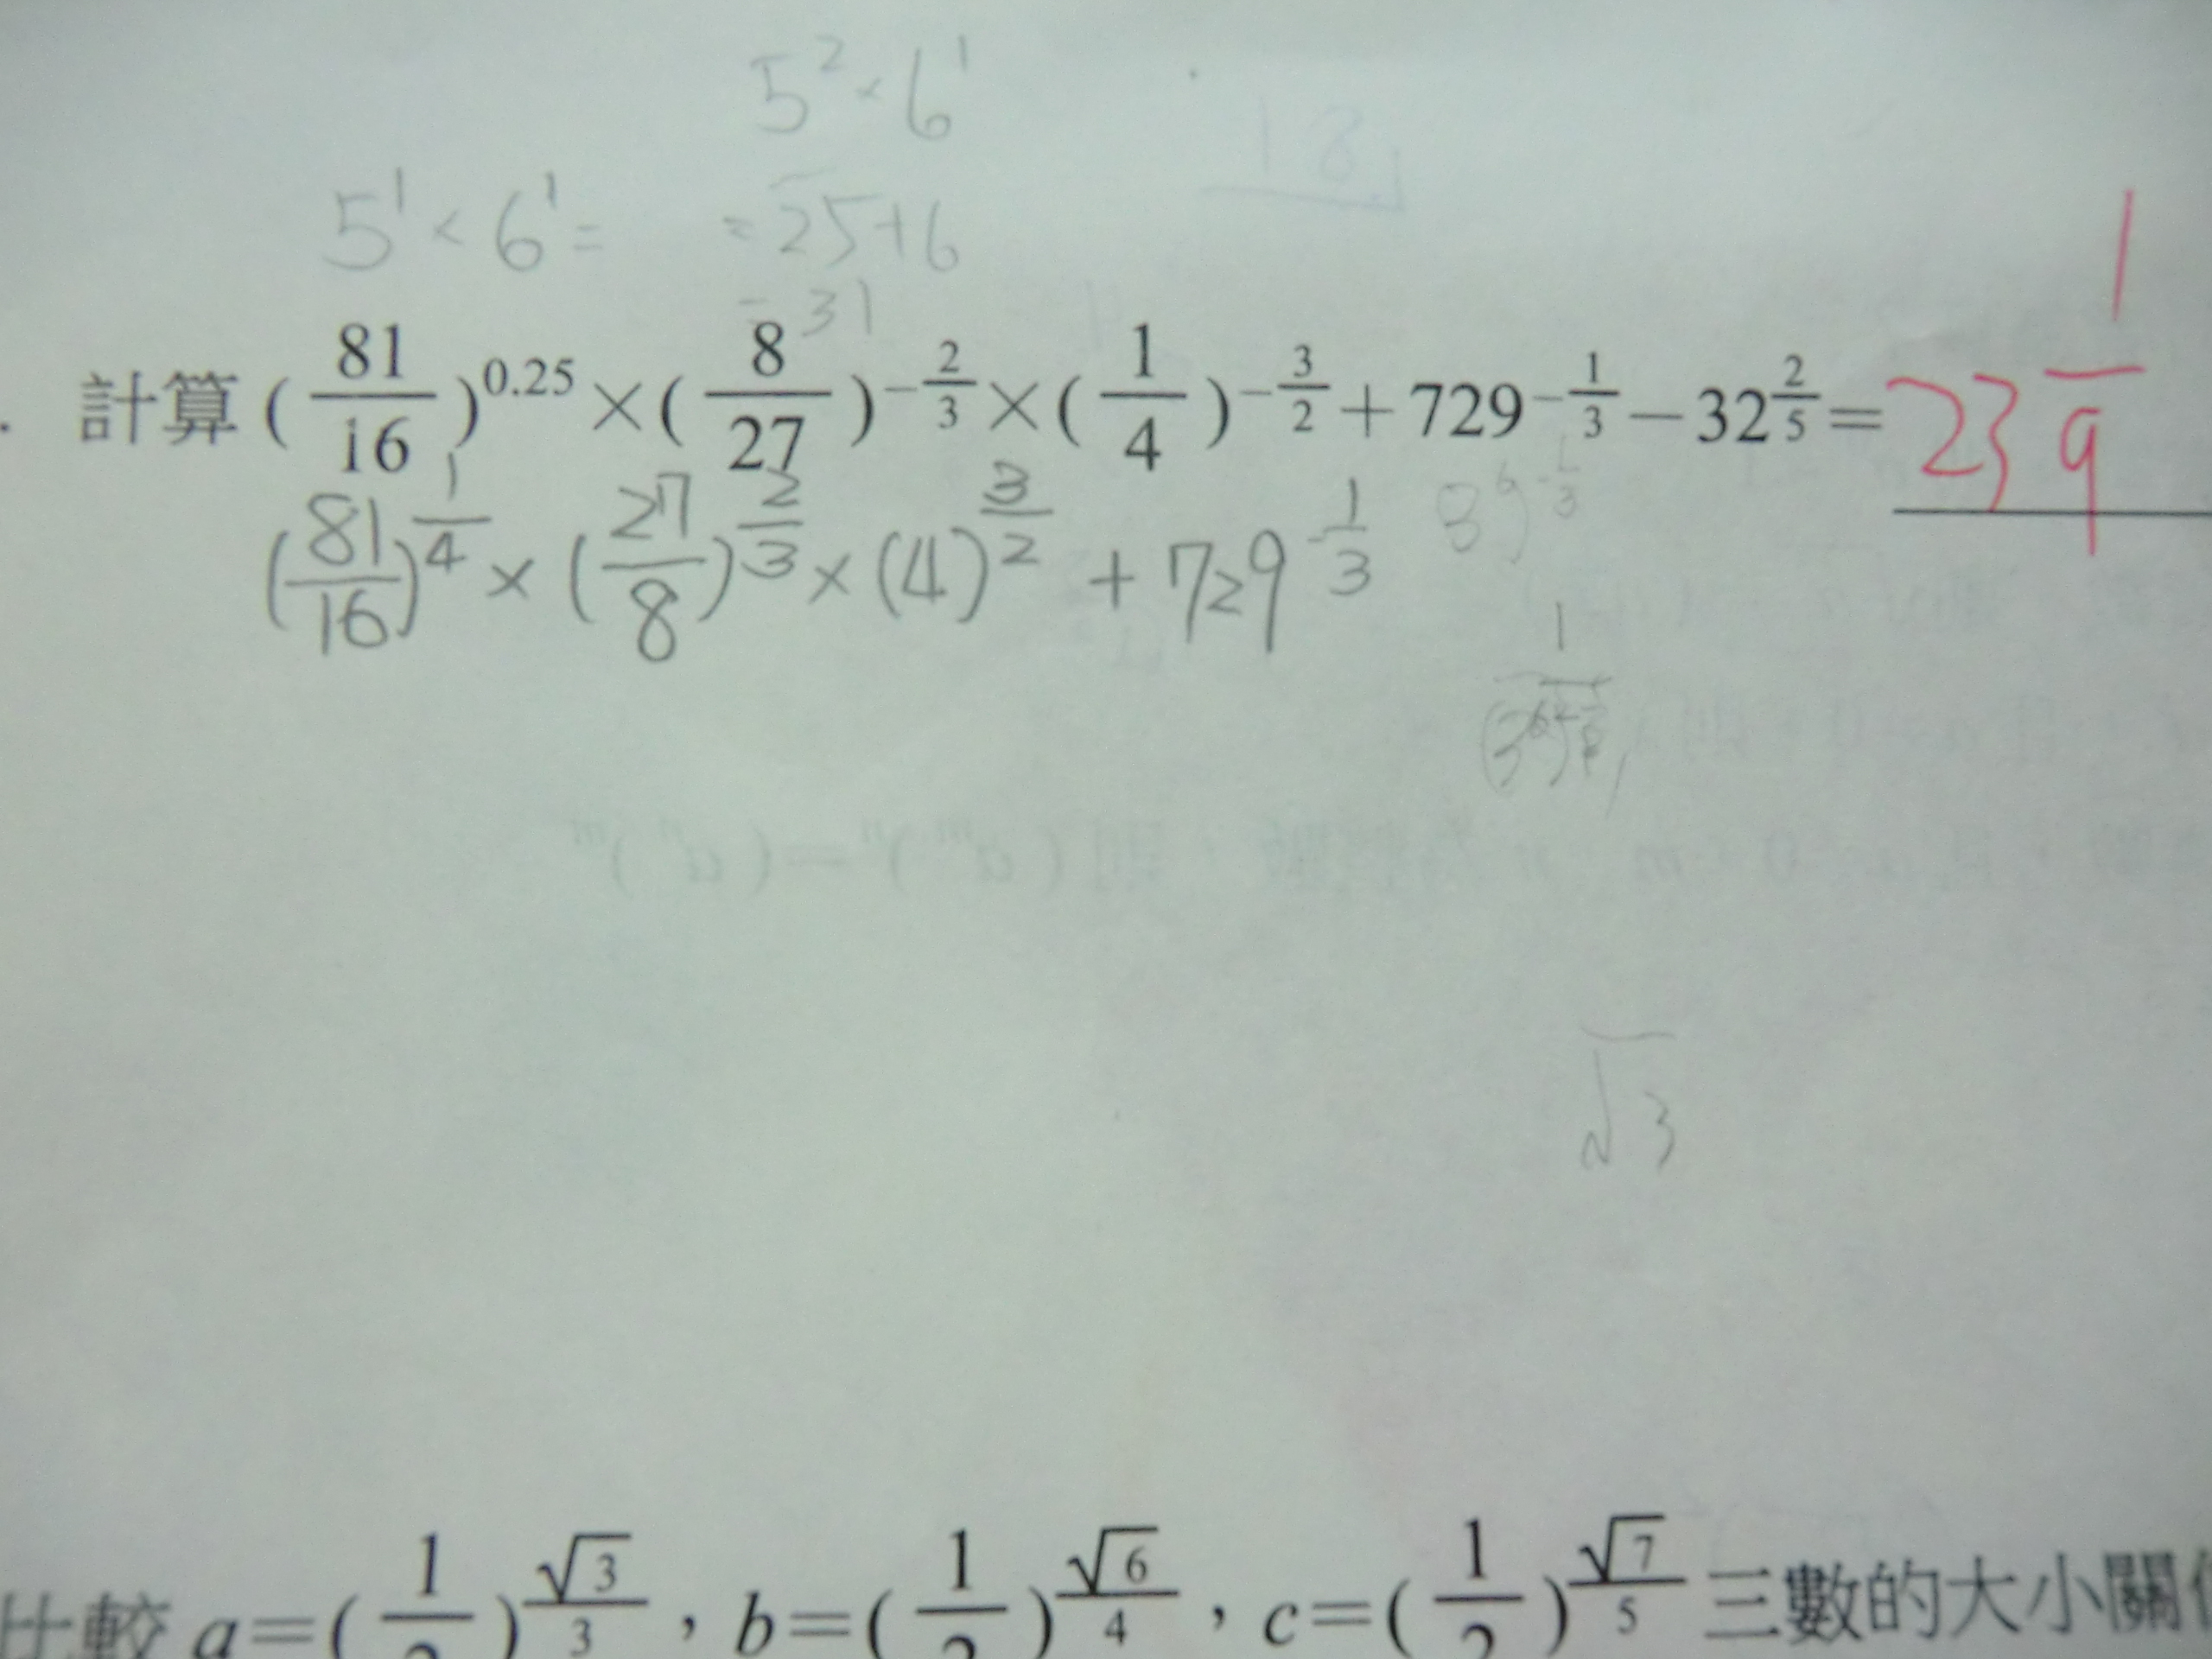 5² × 6¹
5¹ × 6¹ =
= 25+6
= 31
計算 (81/16)^0.25 × (8/27)^-2/3 × (1/4)^-3/2 + 729^-1/3 − 32^2/5 = 23 1/9
(81/16)^1/4 × (27/8)^2/3 × (4)^3/2 + 729^-1/3
√3
比較 a=(1/2)^√3/3 , b=(1/2)^√6/4 , c=(1/2)^√7/5 三數的大小關